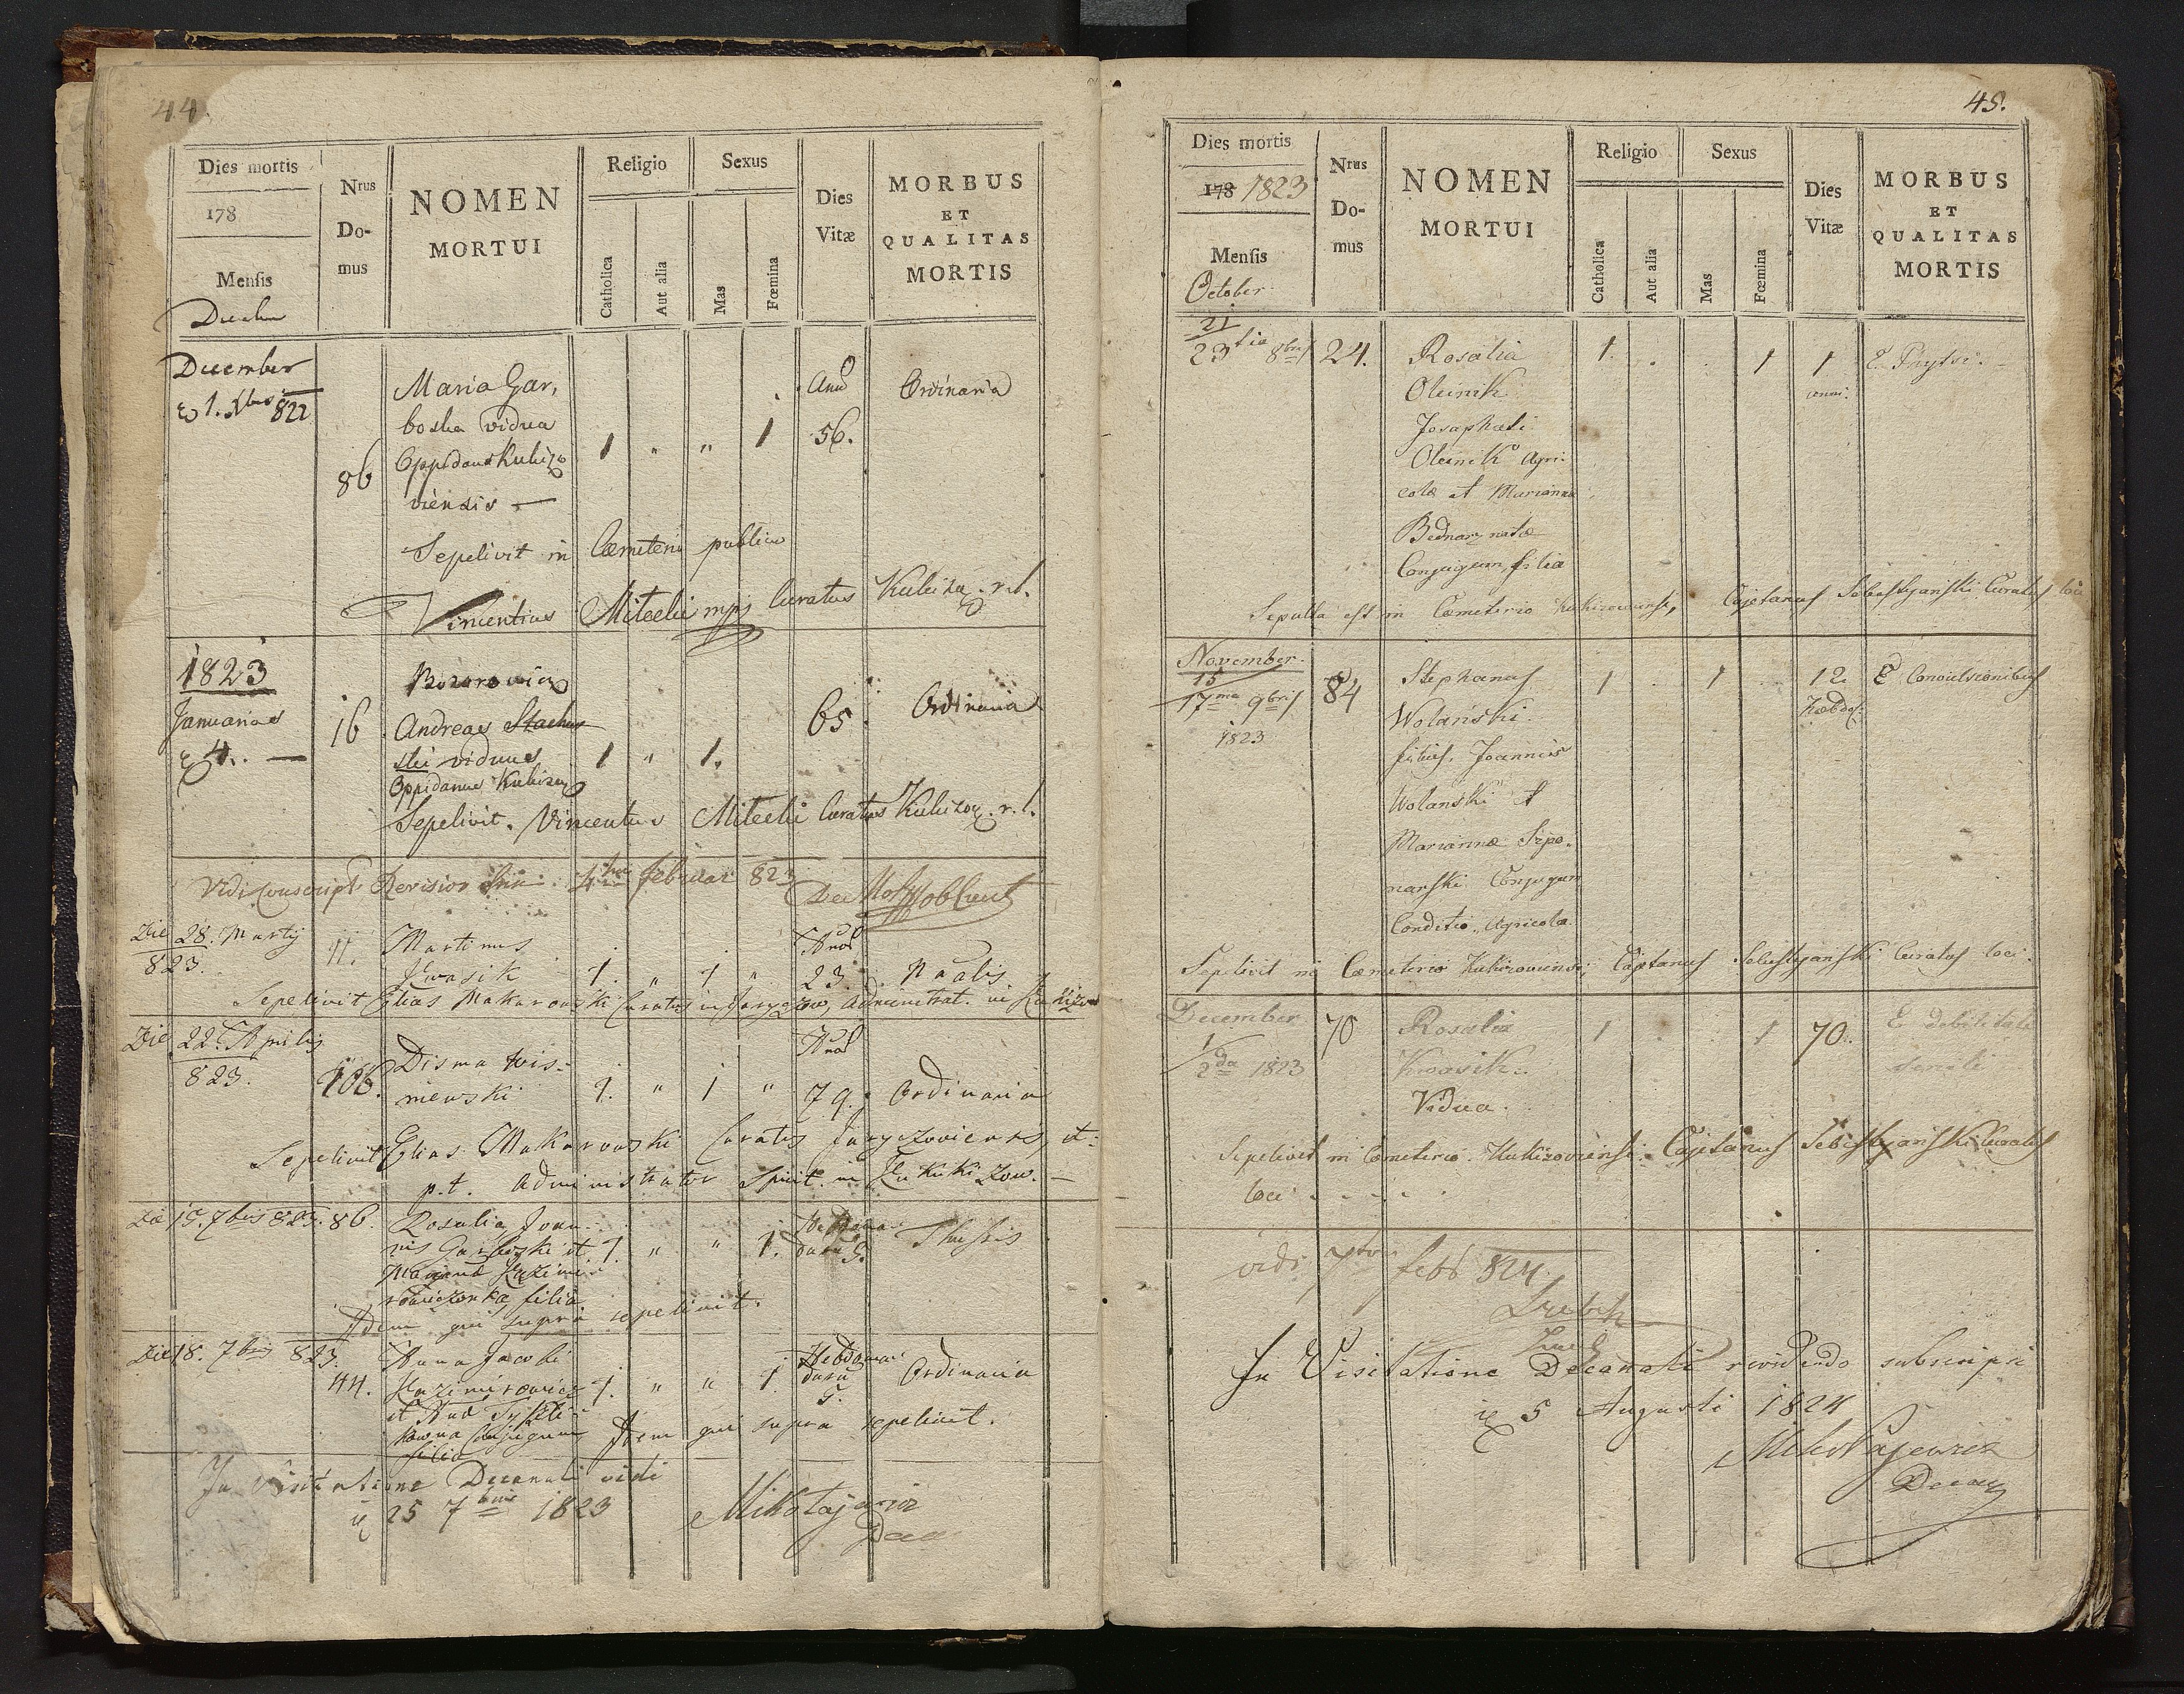 44.
Dies mortis
178
Mensis
Nrus
Do-
mus
NOMEN
MORTUI
Religio
Catholica
Aut alia
Sexus
Mas
Fœmina
Dies
Vitæ
MORBUS
ET
QUALITAS
MORTIS
December
1. Xbris 822
86
Maria Gar,
boska vidua
viensis —
1 " " 1
56.
Ordinaria
Sepelivit in Cæmeterio publico
Vincentius Mitecki mpp Curatus Kukizov. r. l.
1823
Januarius
4. —
16
Andreas
ski viduus
Oppidanus Kukizov
1 " 1.
65
Ordinaria
Sepelivit. Vincentius Mitecki Curatus Kukizov. r. l.
Vidi Februar 823
Die 28. Martij
823.
11.
Martinus
Kwasik
1. " 1 "
23.
Sepelivit Elias Makarowski Curatus in Jaryczow, Administrat. in Kukizow
Die 22. Aprilis
823.
106.
Disma Wis-
niewski
1. " 1 "
79.
Ordinaria
Sepelivit Elias Makarowski Curatus Jaryczoviensis, et
p.t. Administrator Spirit. in Kukizow. —
Die 15. 7bris 823. 86.
Rosalia Joan-
nis Garboski et
filia
1. " " 1.
Thussis
Idem qui supra sepelivit.
Die 18. 7bris 823.
44.
Anna Jacobi
Kazimirowicz
et
Conjugum
filia
1. " " 1.
Ordinaria
Idem qui supra sepelivit.
In Visitatione Decanali vidi
25 7bris 1823
Mikołajewicz
45.
Dies mortis
178 1823
Mensis
October
Nrus
Do-
mus
NOMEN
MORTUI
Religio
Catholica
Aut alia
Sexus
Mas
Fœmina
Dies
Vitæ
MORBUS
ET
QUALITAS
MORTIS
21
23tia 8bris
24.
Rosalia
Oleinik
Josaphati
Oleinik Agri-
colæ et Mariannæ
Bednarz natæ
Conjugum filia
1. . . 1
1
anni.
Sepulta est in Cæmeterio Kukizoviensi, Cajetanus Sebastyanski Curatus loci
November
15
17ma 9bris
1823
84
Stephanus
Wolanski.
filius Joannis
Wolanski et
Mariannæ Szpo-
narski Conjugum
Conditio. Agricola.
1 1
12
Hebdo:
E Convulsionibus
Sepelivit in Cæmeterio Kukizoviensi Cajetanus Sebastyanski Curatus loci.
December
1
2da 1823
70
Rosalia
Kwasik.
Vidua.
1 1
70.
E debilitate
senili
Sepelivit in Cæmeterio Kukizoviensi. Cajetanus Sebastyanski Curatus
loci . . . .
vidi 7 feb 824
In Visitatione Decanali revidendo subscripsi
5 Augusti 1824
Mikołajewicz
Decan